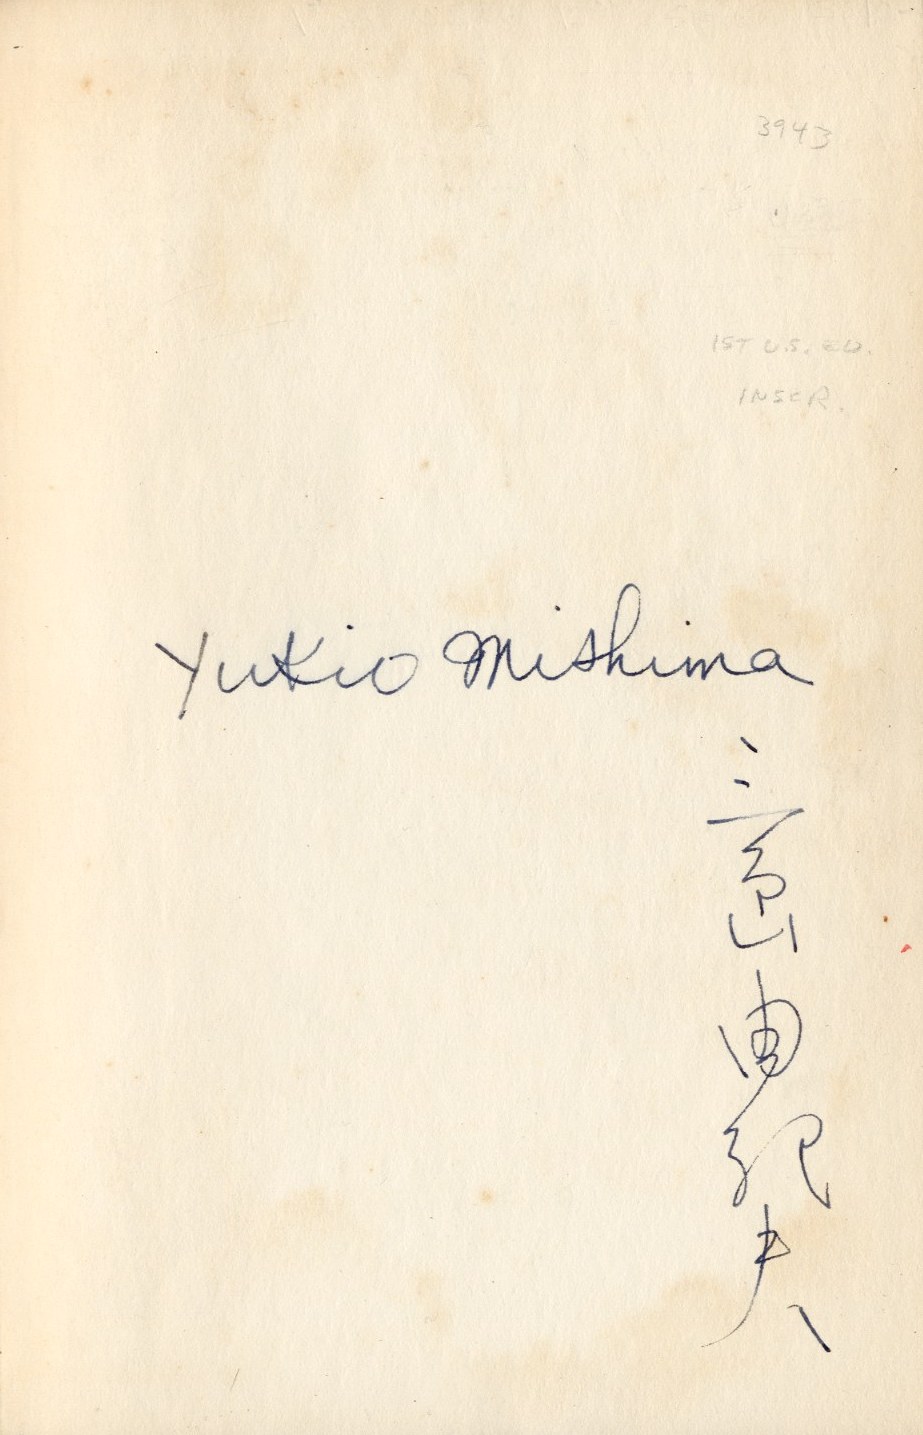 3943
1ST U.S. ED.
INSCR.
Yukio Mishima
三島由紀夫